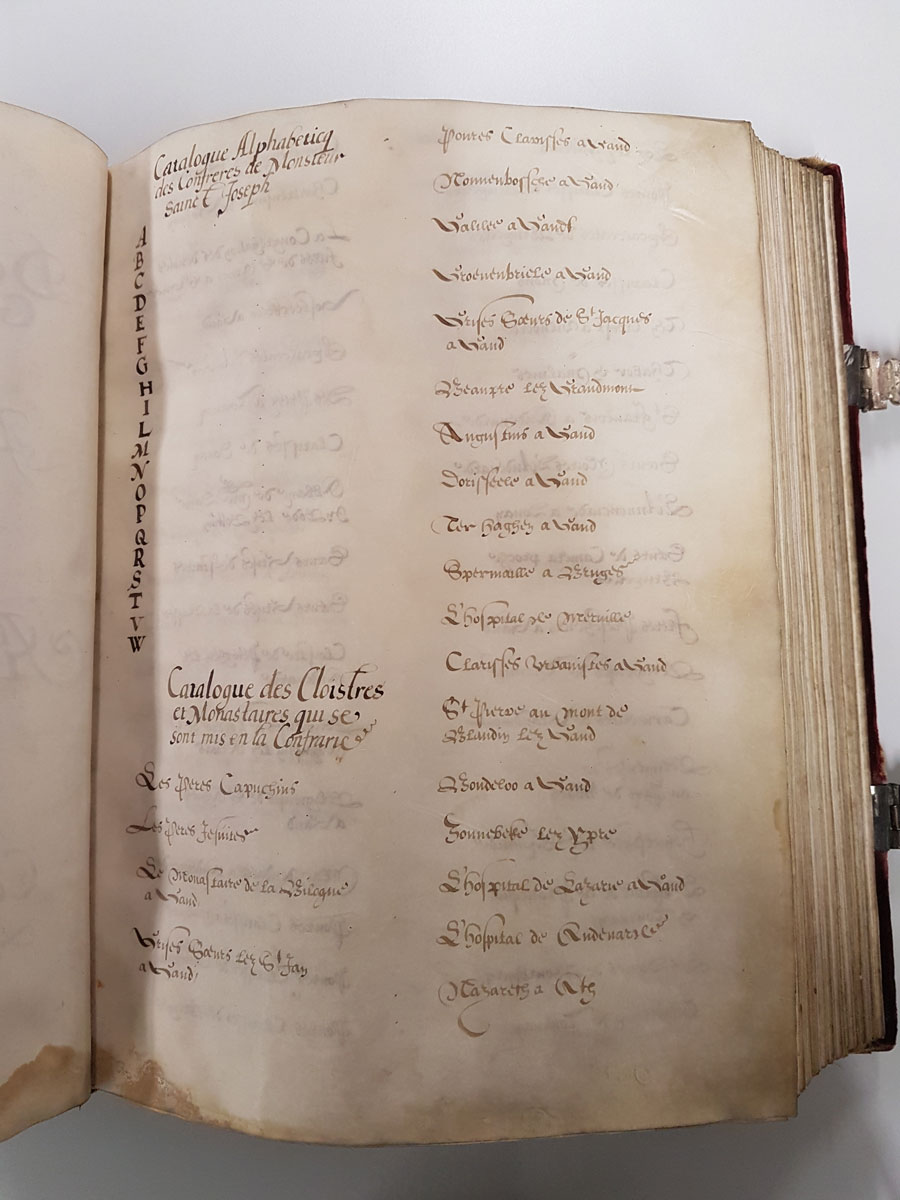 Catalogue Alphabeticq
des Confreres de Monsieur
Sainct Joseph
A
B
C
D
E
F
G
H
I
L
M
N
O
P
Q
R
S
T
V
W
Catalogue des Cloistres
et Monastaires qui se
sont mis en la Confrarie
Les Peres Capuchins
Les Peres Jesuites
Le Monastaire de la Bilogue
a Gand
Grises Sœurs lez St Jan
a Gand
Poures Clarisses a Gand
Nonnenbossche a Gand
Galilee a Gandt
Groenenbriele a Gand
Grises Sœurs de St Jacques
a Gand
Beaupre lez Grandmont
Augustins a Gand
Dorisseele a Gand
Ter Haghen a Gand
Spermaille a Bruges
L'hospital de Merville
Clarisses Urbanistes a Gand
St Pierre au mont de
Blandin lez Gand
Bondeloo a Gand
Sonnebeke lez Ypre
L'hospital de Lazarie a Gand
L'hospital de Audenarde
Nazareth a Ath